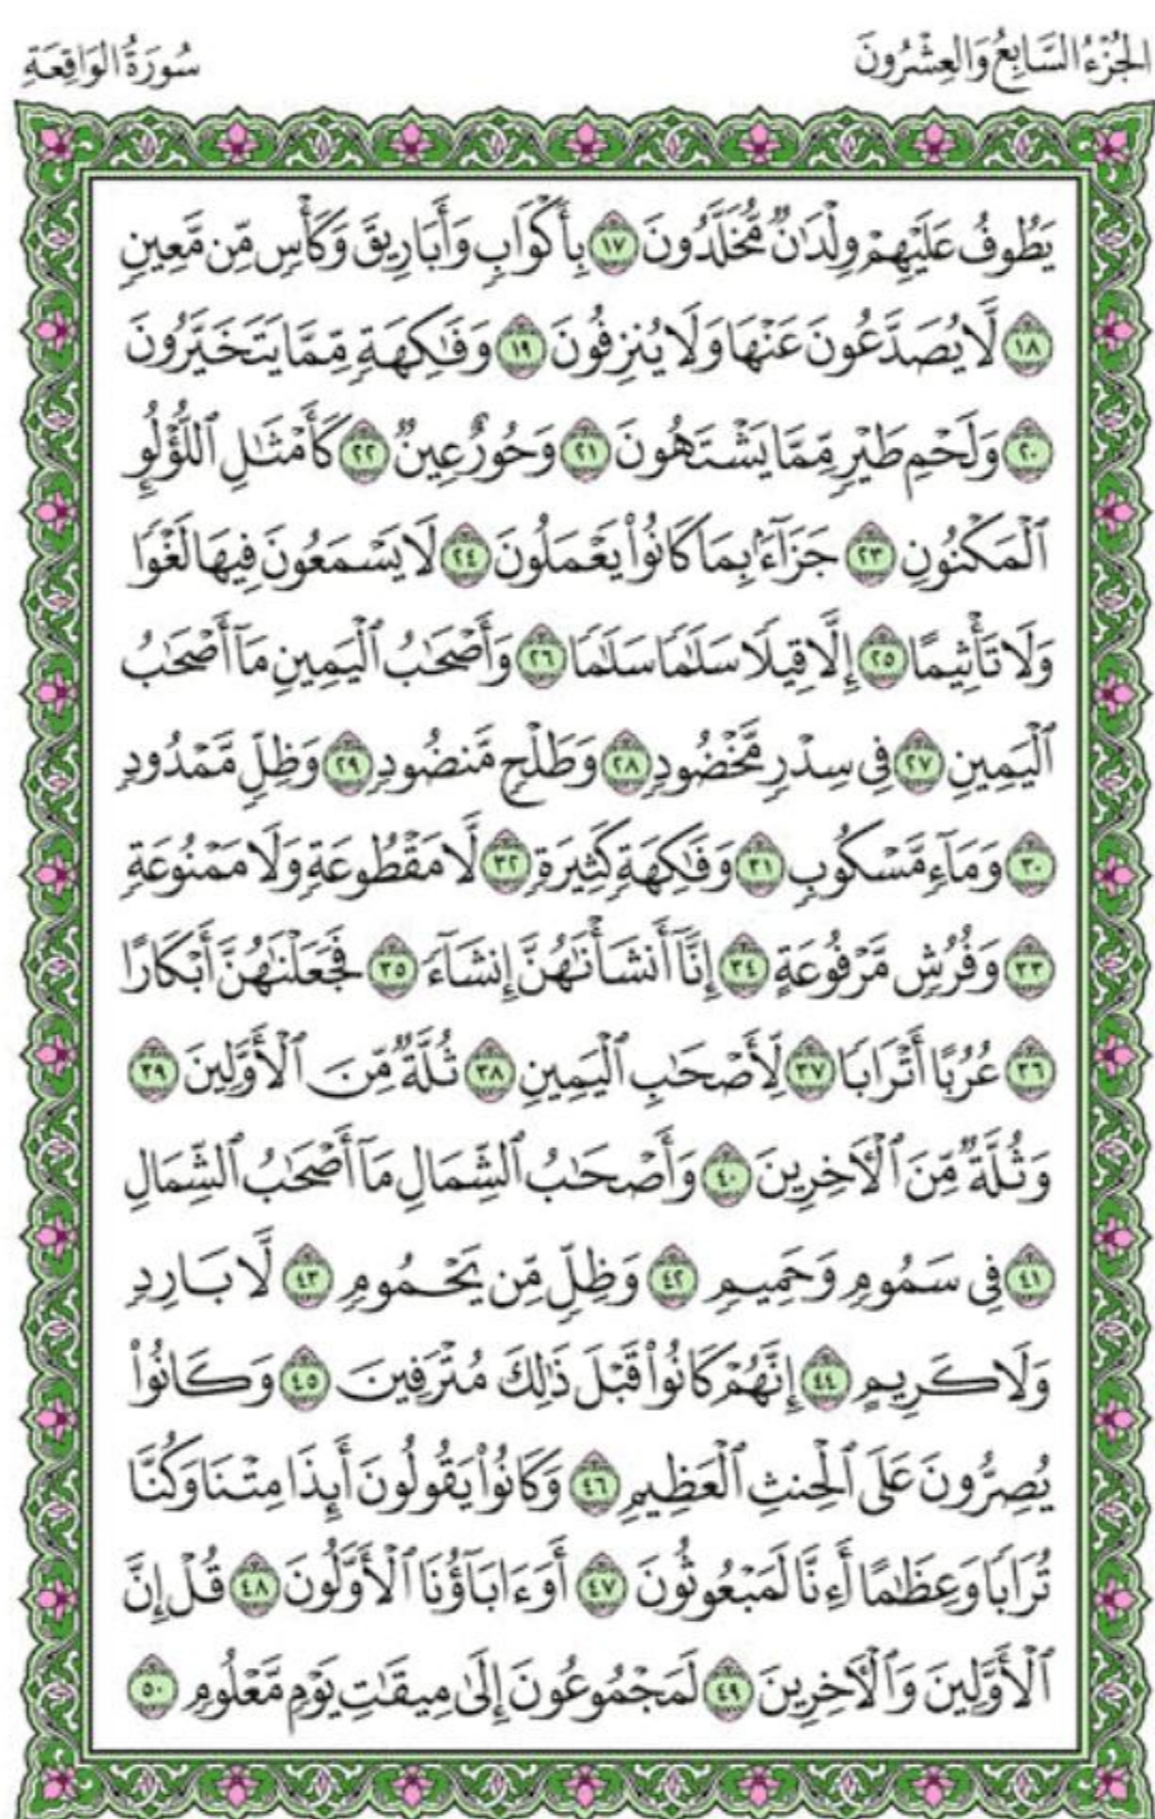 الجُزْءُ السَّابِعُ وَالعِشْرُونَ
سُورَةُ الوَاقِعَةِ
يَطُوفُ عَلَيْهِمْ وِلْدَٰنٌ مُّخَلَّدُونَ ١٧ بِأَكْوَابٍ وَأَبَارِيقَ وَكَأْسٍ مِّن مَّعِينٍ
١٨ لَّا يُصَدَّعُونَ عَنْهَا وَلَا يُنزِفُونَ ١٩ وَفَٰكِهَةٍ مِّمَّا يَتَخَيَّرُونَ
٢٠ وَلَحْمِ طَيْرٍ مِّمَّا يَشْتَهُونَ ٢١ وَحُورٌ عِينٌ ٢٢ كَأَمْثَٰلِ ٱللُّؤْلُؤِ
ٱلْمَكْنُونِ ٢٣ جَزَآءًۢ بِمَا كَانُوا۟ يَعْمَلُونَ ٢٤ لَا يَسْمَعُونَ فِيهَا لَغْوًا
وَلَا تَأْثِيمًا ٢٥ إِلَّا قِيلًا سَلَٰمًا سَلَٰمًا ٢٦ وَأَصْحَٰبُ ٱلْيَمِينِ مَآ أَصْحَٰبُ
ٱلْيَمِينِ ٢٧ فِى سِدْرٍ مَّخْضُودٍ ٢٨ وَطَلْحٍ مَّنضُودٍ ٢٩ وَظِلٍّ مَّمْدُودٍ
٣٠ وَمَآءٍ مَّسْكُوبٍ ٣١ وَفَٰكِهَةٍ كَثِيرَةٍ ٣٢ لَّا مَقْطُوعَةٍ وَلَا مَمْنُوعَةٍ
٣٣ وَفُرُشٍ مَّرْفُوعَةٍ ٣٤ إِنَّآ أَنشَأْنَٰهُنَّ إِنشَآءً ٣٥ فَجَعَلْنَٰهُنَّ أَبْكَارًا
٣٦ عُرُبًا أَتْرَابًا ٣٧ لِّأَصْحَٰبِ ٱلْيَمِينِ ٣٨ ثُلَّةٌ مِّنَ ٱلْأَوَّلِينَ ٣٩
وَثُلَّةٌ مِّنَ ٱلْءَاخِرِينَ ٤٠ وَأَصْحَٰبُ ٱلشِّمَالِ مَآ أَصْحَٰبُ ٱلشِّمَالِ
٤١ فِى سَمُومٍ وَحَمِيمٍ ٤٢ وَظِلٍّ مِّن يَحْمُومٍ ٤٣ لَّا بَارِدٍ
وَلَا كَرِيمٍ ٤٤ إِنَّهُمْ كَانُوا۟ قَبْلَ ذَٰلِكَ مُتْرَفِينَ ٤٥ وَكَانُوا۟
يُصِرُّونَ عَلَى ٱلْحِنثِ ٱلْعَظِيمِ ٤٦ وَكَانُوا۟ يَقُولُونَ أَئِذَا مِتْنَا وَكُنَّا
تُرَابًا وَعِظَٰمًا أَءِنَّا لَمَبْعُوثُونَ ٤٧ أَوَءَابَآؤُنَا ٱلْأَوَّلُونَ ٤٨ قُلْ إِنَّ
ٱلْأَوَّلِينَ وَٱلْءَاخِرِينَ ٤٩ لَمَجْمُوعُونَ إِلَىٰ مِيقَٰتِ يَوْمٍ مَّعْلُومٍ ٥٠